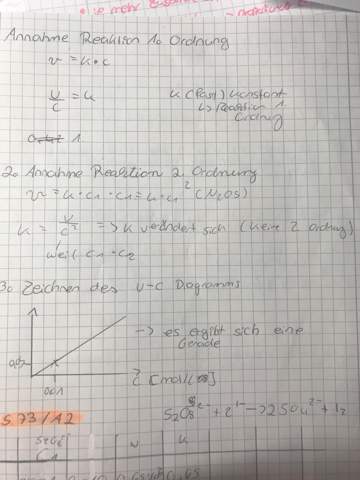 je mehr
Annahme Reaktion 1. Ordnung
v = k · c
v/c = k
k (fast) konstant
↳ Reaktion 1.
Ordnung
1
2. Annahme Reaktion 2. Ordnung
v = k · c1 · c1 = k · c1² (N2O5)
k = v/c² => k verändert sich (keine 2 Ordnung)
weil c1 · c2
3. Zeichnen des v-c Diagramms
-> es ergibt sich eine
Gerade
0,01
c̄ [mol/(
S2O8²⁻ + 2I⁻ -> 2SO4²⁻ + I2
S 73/A2
v k
C1